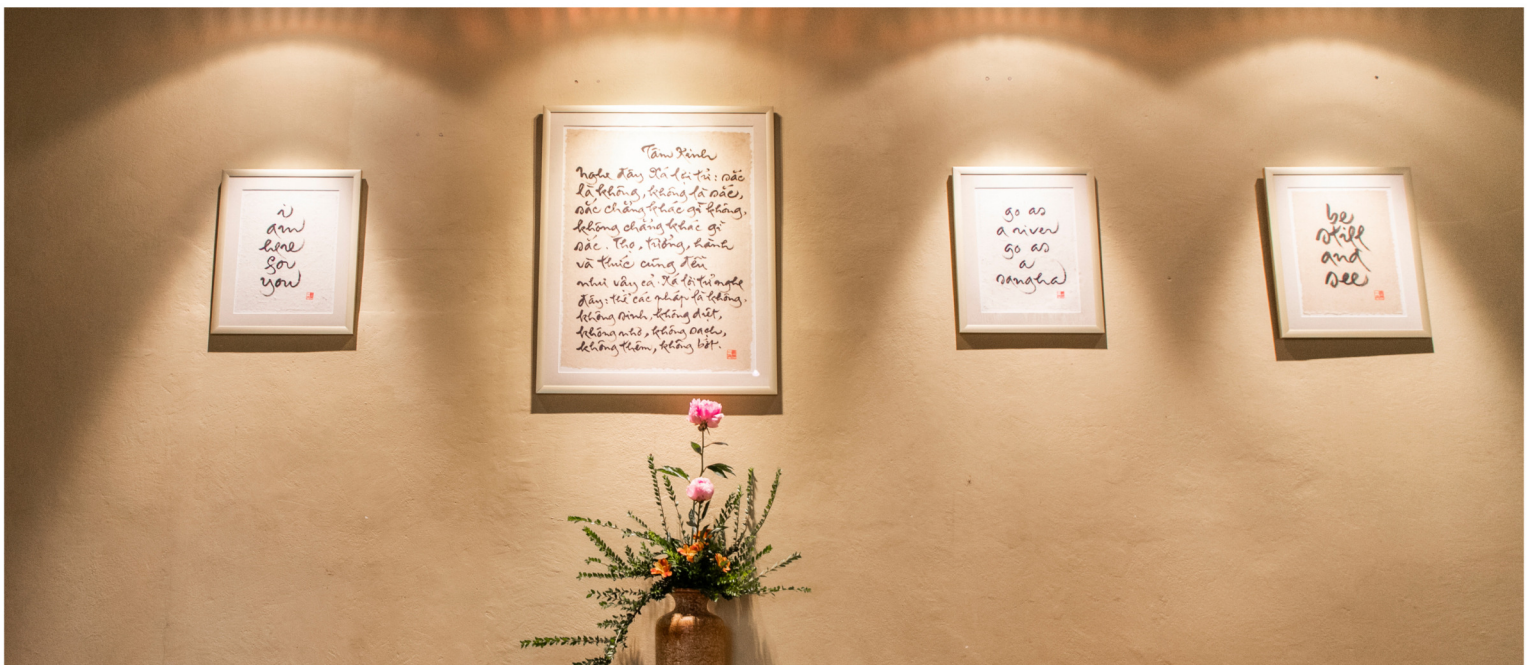 i
am
here
for
you
Tâm Kinh
Nghe đây Xá lợi tử: sắc
là không, không là sắc,
sắc chẳng khác gì không,
không chẳng khác gì
sắc. Thọ, tưởng, hành
và thức cũng đều
như vậy cả. Xá lợi tử nghe
đây: thể các pháp là không.
không sinh, không diệt,
không nhơ, không sạch,
không thêm, không bớt.
go as
a river
go as
a
sangha
be
still
and
see